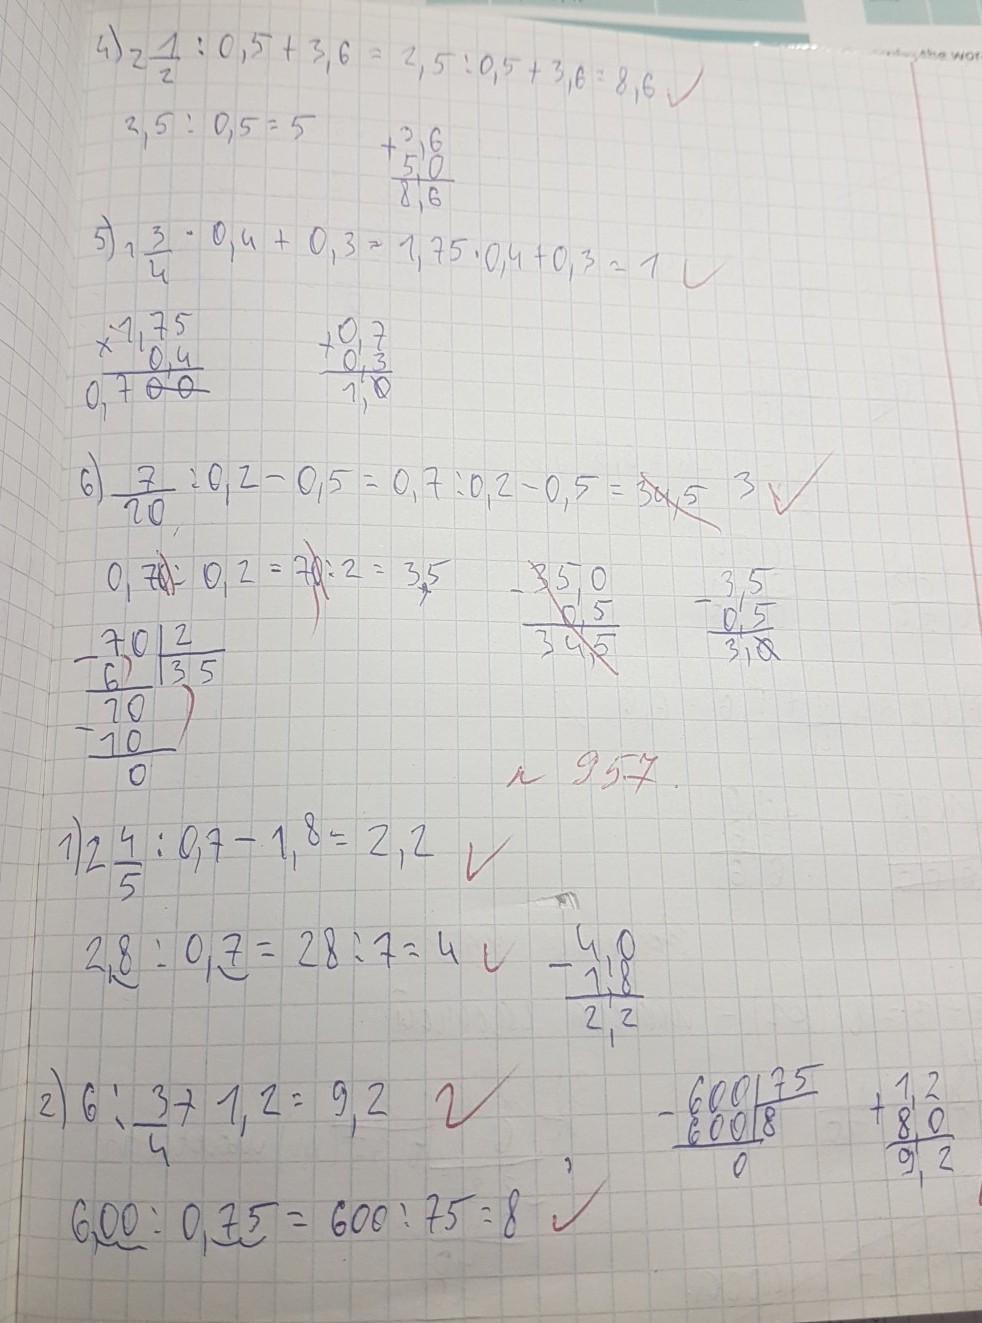 the wor
4) 2 1/2 : 0,5 + 3,6 = 2,5 : 0,5 + 3,6 = 8,6 ✓
2,5 : 0,5 = 5
+ 3,6
5,0
8,6
5) 1 3/4 · 0,4 + 0,3 = 1,75 · 0,4 + 0,3 = 1 ✓
× 1,75
0,4
0,700
+ 0,7
0,3
1,0
6) 7/20 : 0,2 - 0,5 = 0,7 : 0,2 - 0,5 = 34,5 3 ✓
0,70 : 0,2 = 70 : 2 = 3,5
- 35,0
0,5
34,5
- 3,5
0,5
3,0
- 70 | 2
6 | 35
10
- 10
0
957.
1) 2 4/5 : 0,7 - 1,8 = 2,2 ✓
2,8 : 0,7 = 28 : 7 = 4 ✓
- 4,0
1,8
2,2
2) 6 : 3/4 + 1,2 = 9,2 ✓
- 600 | 75
600 | 8
0
+ 1,2
8,0
9,2
6,00 : 0,75 = 600 : 75 = 8 ✓